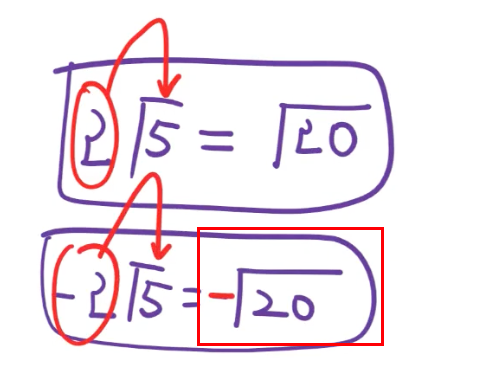 2√5 = √20
-2√5 = -√20